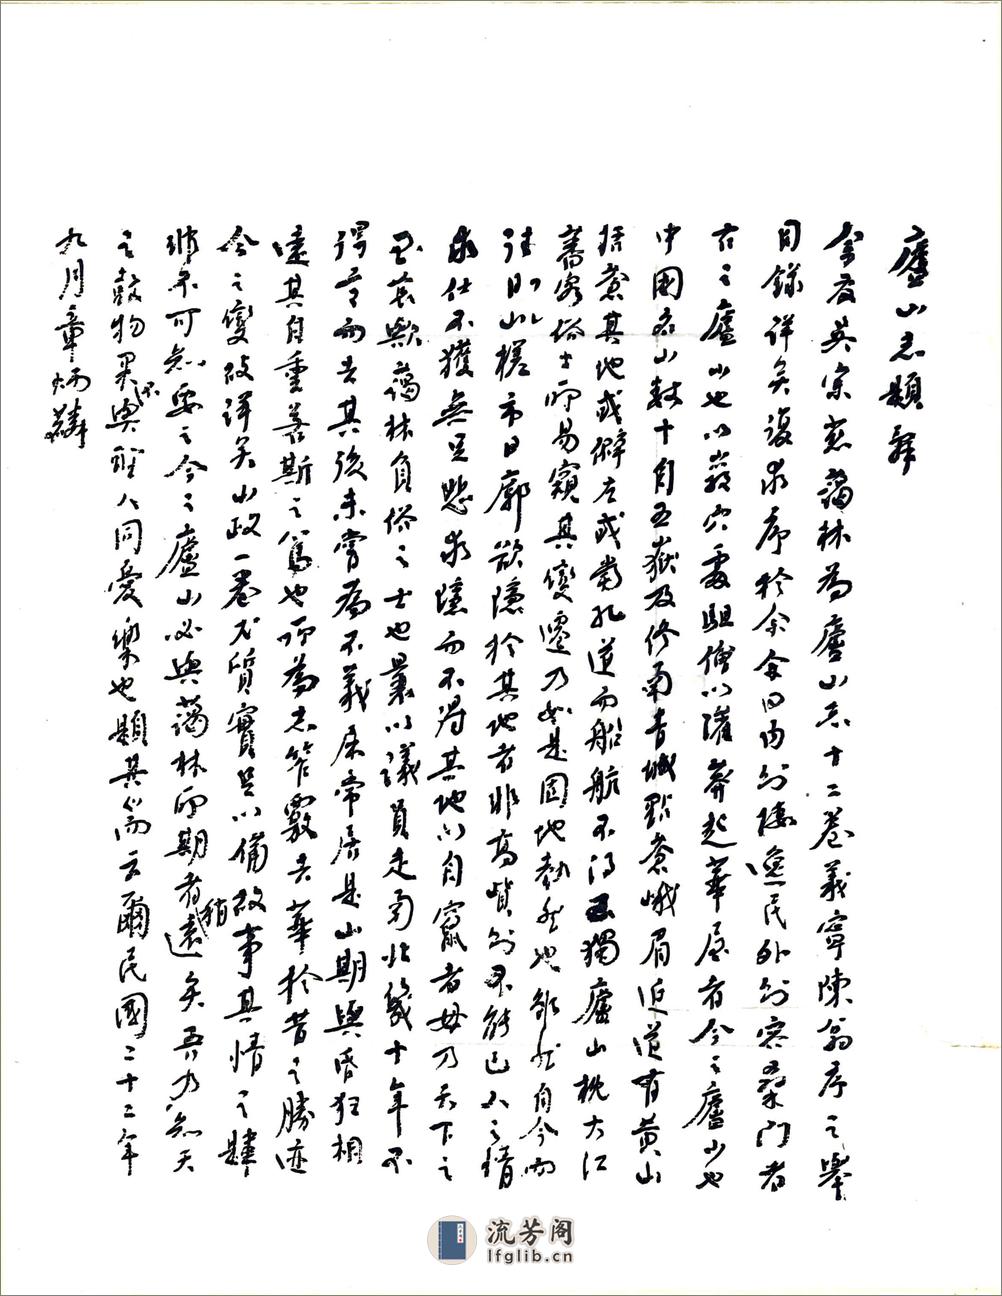 廬山志題辭
余友吳宗慈藹林為廬山志十二卷義寧陳翁序之舉
目錄詳矣復求序於余余曰內則棲逸民外則容桑門者
古之廬山也以巖穴處駔儈以灌莽起華屋者今之廬山也
中國名山數十自五嶽及終南青城點蒼峨眉近道有黃山
括蒼其地或僻左或當孔道而船航不得至獨廬山枕大江
蕃客俗士所易窺其變遷乃如是固地勢然也雖然自今而
往則山樣市日廓欲隱於其地者非高貲則不能已人之情
求仕不獲無足悲求隱而不得其地以自竄者毋乃天下之
至哀歟藹林負俗之士也曩以議員走南北幾十年不
得意而去其後未嘗為不義屈常居是山期與昏狂相
遠其自重若斯之篤也所為志筆覈去華於昔之勝迹
今之變故詳矣山政一卷尤質實足以備故事其情之肆
猶未可知要之今之廬山必與藹林所期者稍遠矣吾乃知天
之鼓物果不與聖人同憂樂也題其耑云爾民國二十二年
九月章炳麟
流芳阁
lfglib.cn